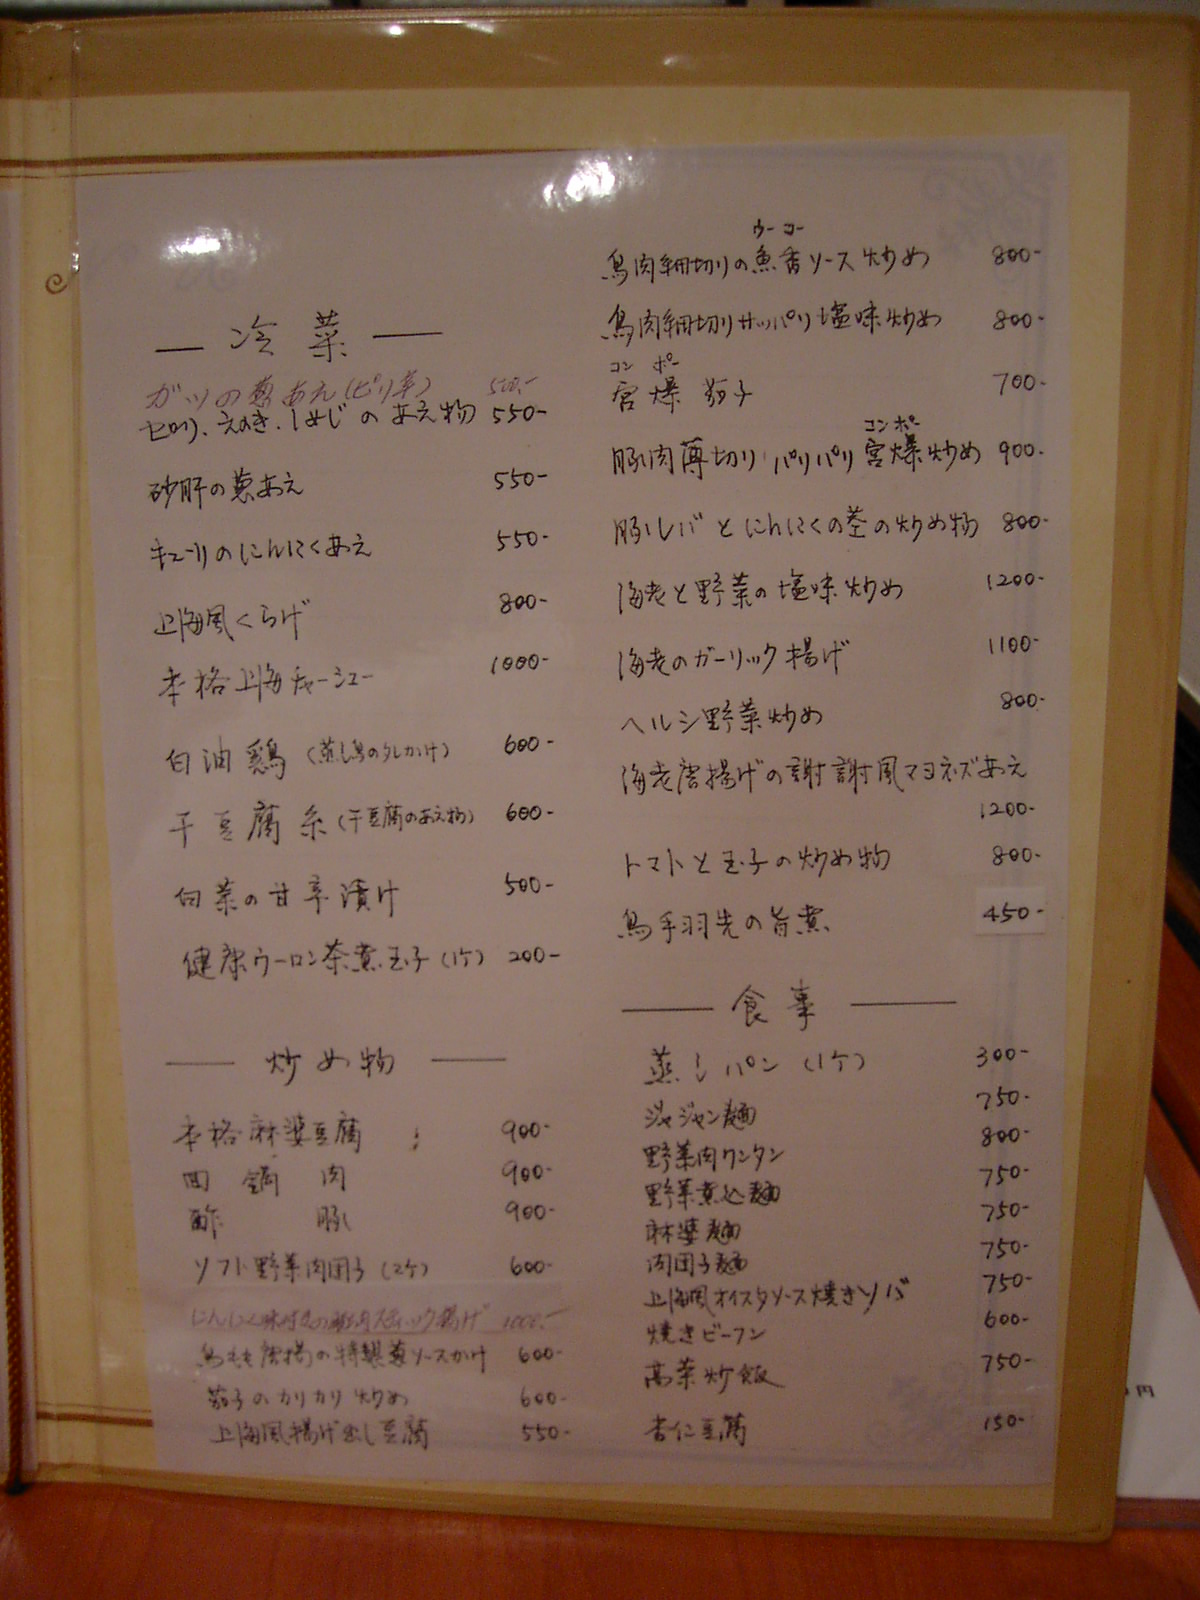 冷菜
ガツの葱あえ(ピリ辛) 500-
セロリ、えのき、しめじのあえ物 550-
砂肝の葱あえ 550-
キューリのにんにくあえ 550-
上海風くらげ 800-
本格上海チャーシュー 1000-
白油鶏(蒸し鳥のタレかけ) 600-
干豆腐糸(干豆腐のあえ物) 600-
白菜の甘辛漬け 500-
健康ウーロン茶煮玉子(1ケ) 200-
炒め物
本格麻婆豆腐 900-
回鍋肉 900-
酢豚 900-
ソフト野菜肉団子(2ケ) 600-
にんにく味付きの豚肉スティック揚げ 1000-
鳥もも唐揚の特製葱ソースかけ 600-
茄子のカリカリ炒め 600-
上海風揚げ出し豆腐 550-
ウーコー
鳥肉細切りの魚香ソース炒め 800-
鳥肉細切りサッパリ塩味炒め 800-
コンポー
宮爆茄子 700-
コンポー
豚肉薄切りパリパリ宮爆炒め 900-
豚レバとにんにくの茎の炒め物 800-
海老と野菜の塩味炒め 1200-
海老のガーリック揚げ 1100-
ヘルシ野菜炒め 800-
海老唐揚げの謝謝風マヨネズあえ
1200-
トマトと玉子の炒め物 800-
鳥手羽先の旨煮 450-
食事
蒸しパン(1ケ) 300-
ジャジャン麺 750-
野菜肉ワンタン 800-
野菜煮込麺 750-
麻婆麺 750-
肉団子麺 750-
上海風オイスタソース焼きソバ 750-
焼きビーフン 600-
高菜炒飯 750-
杏仁豆腐 150-
円